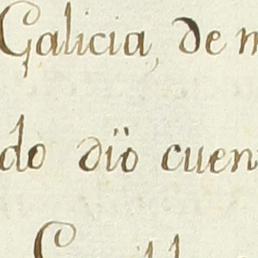 Galicia, de m
do dïo cuen
C